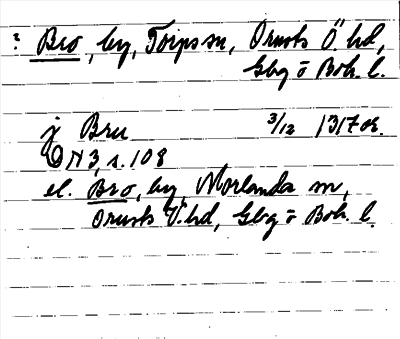 : Bro, by, Torps sn, Orusts Ö hd,
Gbg o Boh. l.
j Bru 3/12 1317 or.
DN 3, s. 108
el. Bro, by, Morlanda sn,
Orusts V. hd, Gbg o Boh. l.